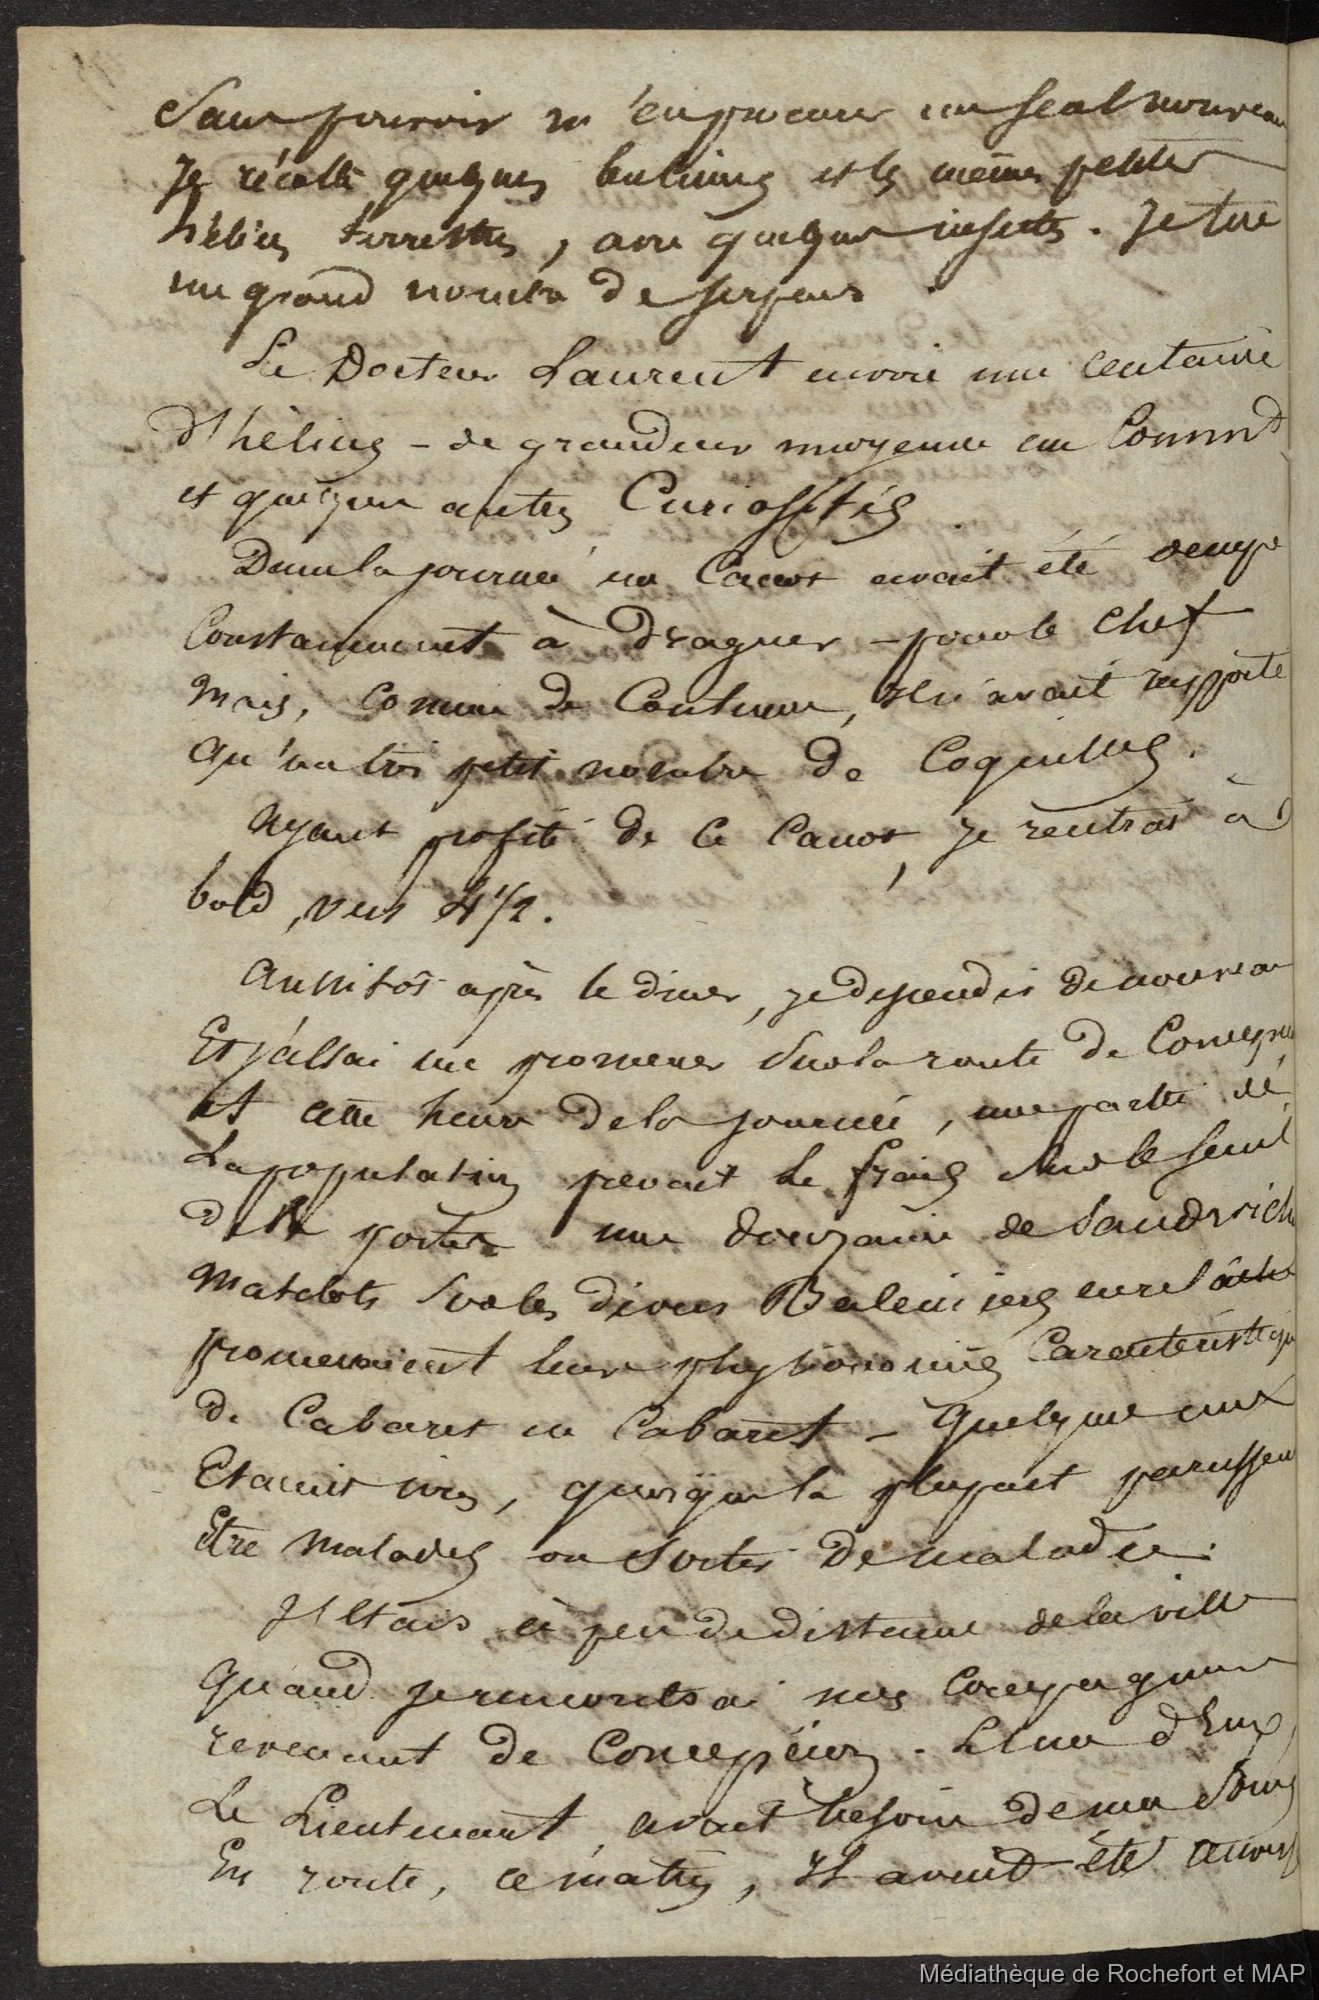 Sans pouvoir m'en procurer un seul nouveau
Je récolte quelques bulimes et les mêmes petites
hélices terrestres, avec quelques insectes. Je tue
un grand nombre de serpens.
Le Docteur Laurent envoie une centaine
d'hélices - de grandeur moyenne au Commt
et quelques autres Curiosités
Dans la journée un Canot avait été occupé
Constamment à draguer - pour le Chef
Mais, Comme de Coutume, il n'avait rapporté
qu'un très petit nombre de Coquilles.
Ayant profité de ce Canot, je rentrai à
bord, vers 4 1/2.
Aussitôt après le diner, je descendis de nouveau
Et j'allai me promener sur la route de
At cette heure de la journée, une partie de
La population prenait le frais sur le seuil
des portes une douzaine de Sandwich
Matelots sur les divers Baleiniers en relâche
promenaient leurs physionomies Caractéristiques
de Cabaret en Cabaret - Quelques uns
Etaient ivres, quoique la plupart parussent
Etre malades ou sortir de maladie.
J'étais à peu de distance de la ville
Quand je rencontrai mes Compagnons
revenant de Concepcion. L'un d'eux,
Le Lieutenant, avait besoin de mes soins
En route, ce matin, il avait été